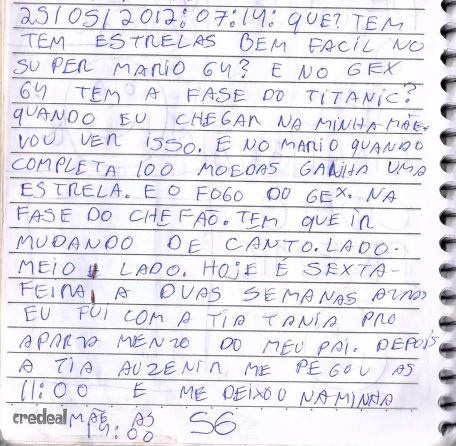 25/05/2012: 07:14: QUE? TEM
TEM ESTRELAS BEM FACIL NO
SUPER MARIO 64? E NO GEX
64 TEM A FASE DO TITANIC?
QUANDO EU CHEGAR NA MINHA MÃE.
VOU VER ISSO. E NO MARIO QUANDO
COMPLETA 100 MOEDAS GANHA UMA
ESTRELA. E O FOGO DO GEX. NA
FASE DO CHEFÃO. TEM QUE IR
MUDANDO DE CANTO. LADO.
MEIO LADO. HOJE É SEXTA-
FEIRA, A DUAS SEMANAS ATRAS
EU FUI COM A TIA TANIA PRO
APARTAMENTO DO MEU PAI. DEPOIS
A TIA AUZENIR ME PEGOU AS
11:00 E ME DEIXOU NA MINHA
credeal MÃE AS 56
14:00